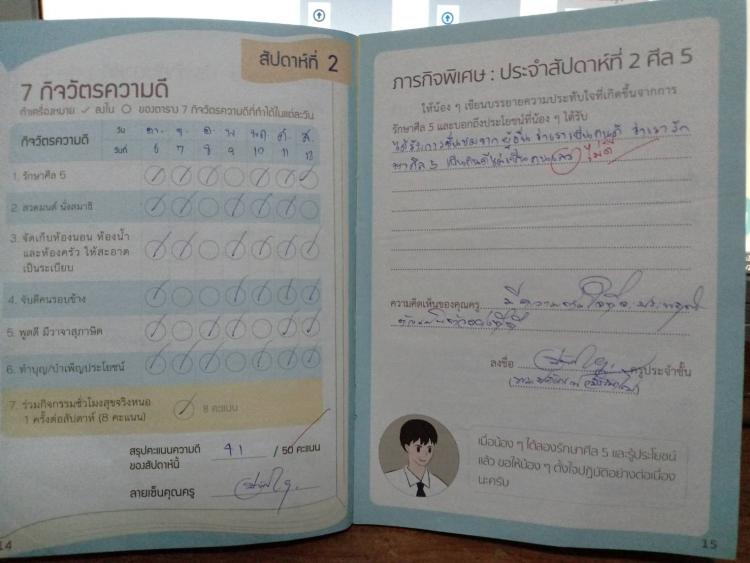 สัปดาห์ที่ 2
7 กิจวัตรความดี
ทำเครื่องหมาย ✓ ลงใน ○ ของตาราง 7 กิจวัตรความดีที่ทำได้ในแต่ละวัน
กิจวัตรความดี
วัน อา. จ. อ. พ พฤ ศ. ส.
วันที่ 6 7 8 9 10 11 12
1. รักษาศีล 5
2. สวดมนต์ นั่งสมาธิ
3. จัดเก็บห้องนอน ห้องน้ำ
และห้องครัว ให้สะอาด
เป็นระเบียบ
4. จับดีคนรอบข้าง
5. พูดดี มีวาจาสุภาษิต
6. ทำบุญ/บำเพ็ญประโยชน์
7. ร่วมกิจกรรมชั่วโมงสุขจริงหนอ
1 ครั้งต่อสัปดาห์ (8 คะแนน)
8 คะแนน
สรุปคะแนนความดี 41 / 50 คะแนน
ของสัปดาห์นี้
ลายเซ็นคุณครู
14
ภารกิจพิเศษ : ประจำสัปดาห์ที่ 2 ศีล 5
ให้น้อง ๆ เขียนบรรยายความประทับใจที่เกิดขึ้นจากการ
รักษาศีล 5 และบอกถึงประโยชน์ที่น้อง ๆ ได้รับ
ได้รับการชื่นชมจากผู้อื่น ว่าเราเป็นคนดี ว่าเรารัก
ษาศีล 5 เป็นคนดีไม่เป็นคนเลว ไม่ดี
ความคิดเห็นของคุณครู มีความตั้งใจที่จะ
ลงชื่อ ครูประจำชั้น
เมื่อน้อง ๆ ได้ลองรักษาศีล 5 และรู้ประโยชน์
แล้ว ขอให้น้อง ๆ ตั้งใจปฏิบัติอย่างต่อเนื่อง
นะครับ
15